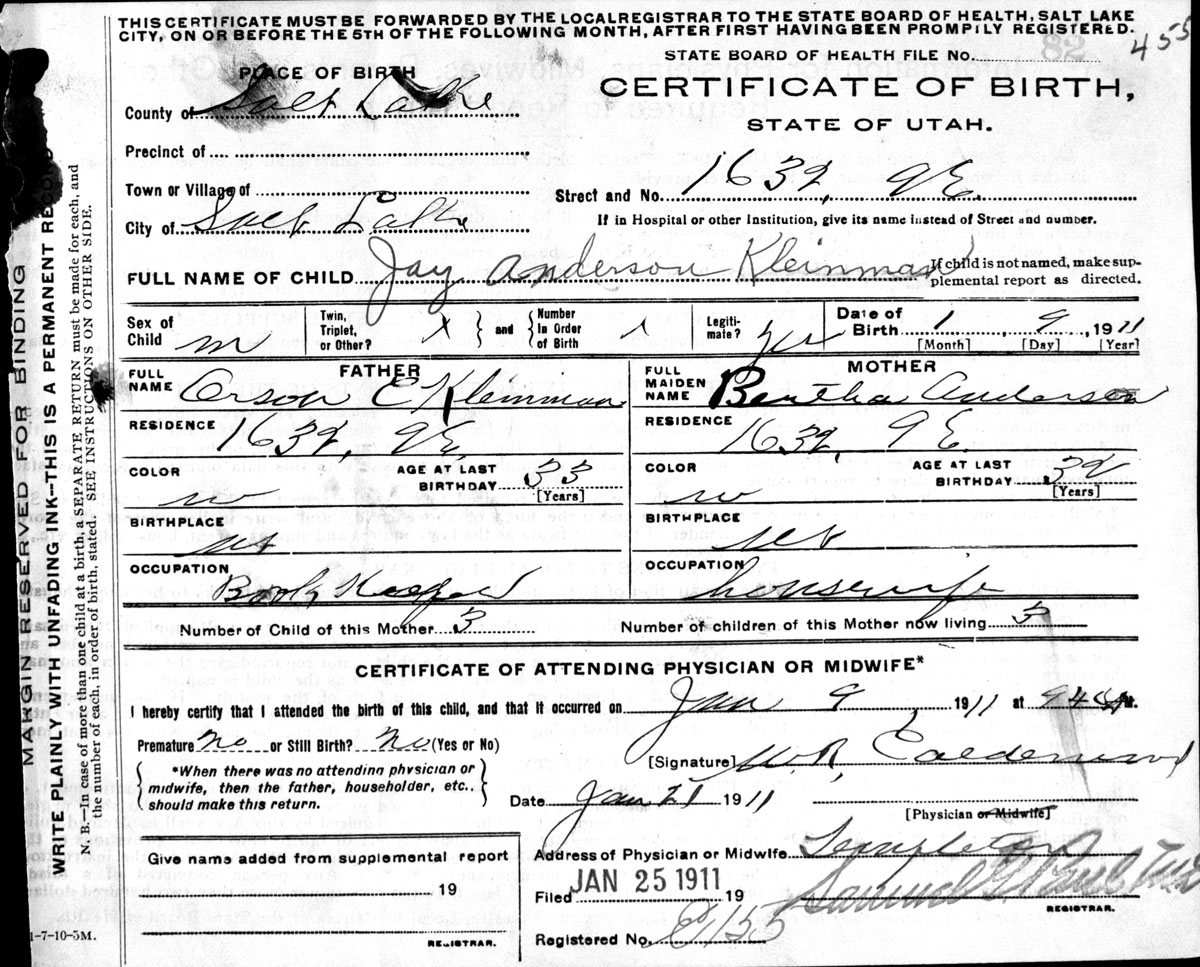 THIS CERTIFICATE MUST BE FORWARDED BY THE LOCAL REGISTRAR TO THE STATE BOARD OF HEALTH, SALT LAKE
CITY, ON OR BEFORE THE 5TH OF THE FOLLOWING MONTH, AFTER FIRST HAVING BEEN PROMPILY REGISTERED.
455
STATE BOARD OF HEALTH FILE No.
PLACE OF BIRTH
CERTIFICATE OF BIRTH,
STATE OF UTAH.
County of Salt Lake
Precinct of
Town or Village of
Street and No. 1632, 9 E.
City of Salt Lake
If in Hospital or other Institution, give its name instead of Street and number.
FULL NAME OF CHILD Jay Anderson Kleinman
If child is not named, make sup-
plemental report as directed.
Sex of Child m
Twin, Triplet, or Other?
and
Number In Order of Birth
Legiti-mate? yes
Date of Birth 1 9 1911
[Month] [Day] [Year]
FATHER
FULL NAME Orson E Kleinman
RESIDENCE 1632, 9 E.
COLOR w
AGE AT LAST BIRTHDAY 33
[Years]
BIRTHPLACE ut
OCCUPATION Book Keeper
MOTHER
FULL MAIDEN NAME Bertha Anderson
RESIDENCE 1632, 9 E.
COLOR w
AGE AT LAST BIRTHDAY 32
[Years]
BIRTHPLACE ut
OCCUPATION housewife
Number of Child of this Mother 3
Number of children of this Mother now living 3
CERTIFICATE OF ATTENDING PHYSICIAN OR MIDWIFE*
I hereby certify that I attended the birth of this child, and that it occurred on Jan 9 1911 at 945 M.
Premature no or Still Birth? no (Yes or No)
*When there was no attending physician or
midwife, then the father, householder, etc.,
should make this return.
[Signature] W.R. Calderwood
Date Jan 21 1911
[Physician or Midwife]
Give name added from supplemental report
19
REGISTRAR.
Address of Physician or Midwife Templeton
Filed JAN 25 1911 19
Samuel G. Paul
REGISTRAR.
Registered No.
1-7-10-5M.
MARGIN RESERVED FOR BINDING
WRITE PLAINLY WITH UNFADING INK—THIS IS A PERMANENT RECORD
N. B.—In case of more than one child at a birth, a SEPARATE RETURN must be made for each, and
the number of each, in order of birth, stated. SEE INSTRUCTIONS ON OTHER SIDE.